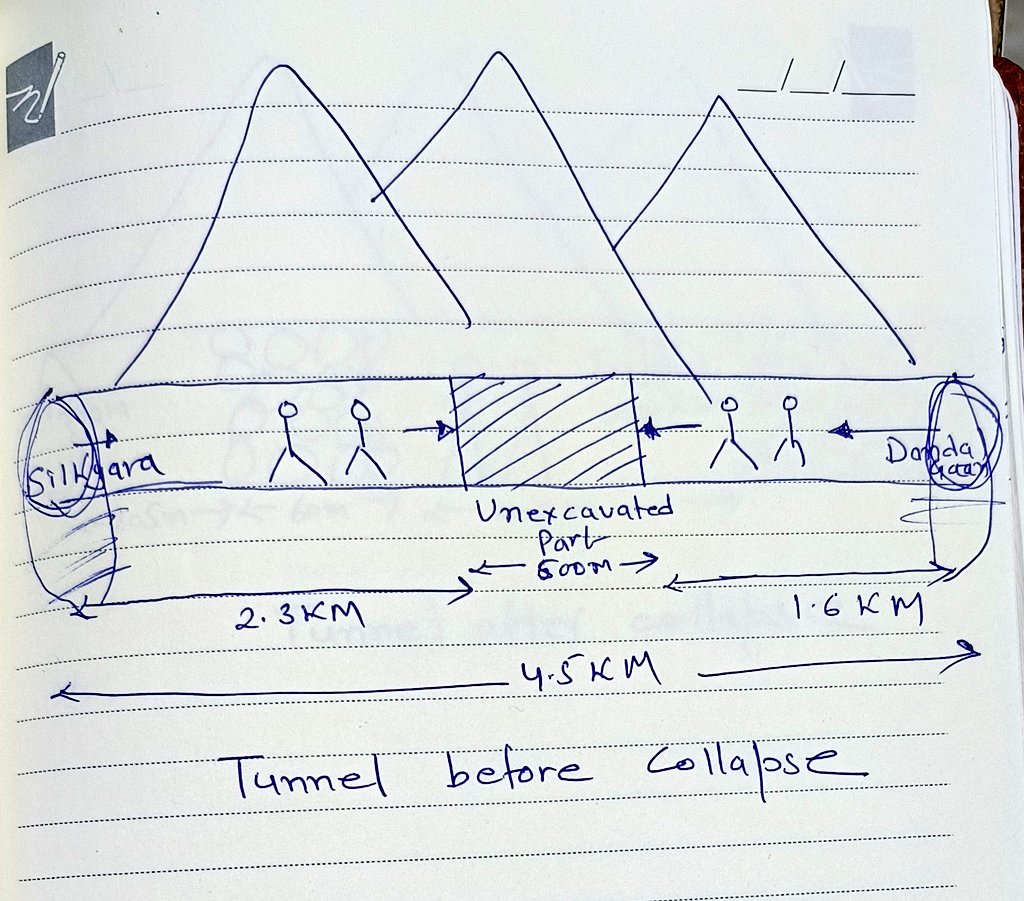 Silkyara
Danda
gaon
Unexcavated
Part
600m
2.3 KM
1.6 KM
4.5 KM
Tunnel before Collapse